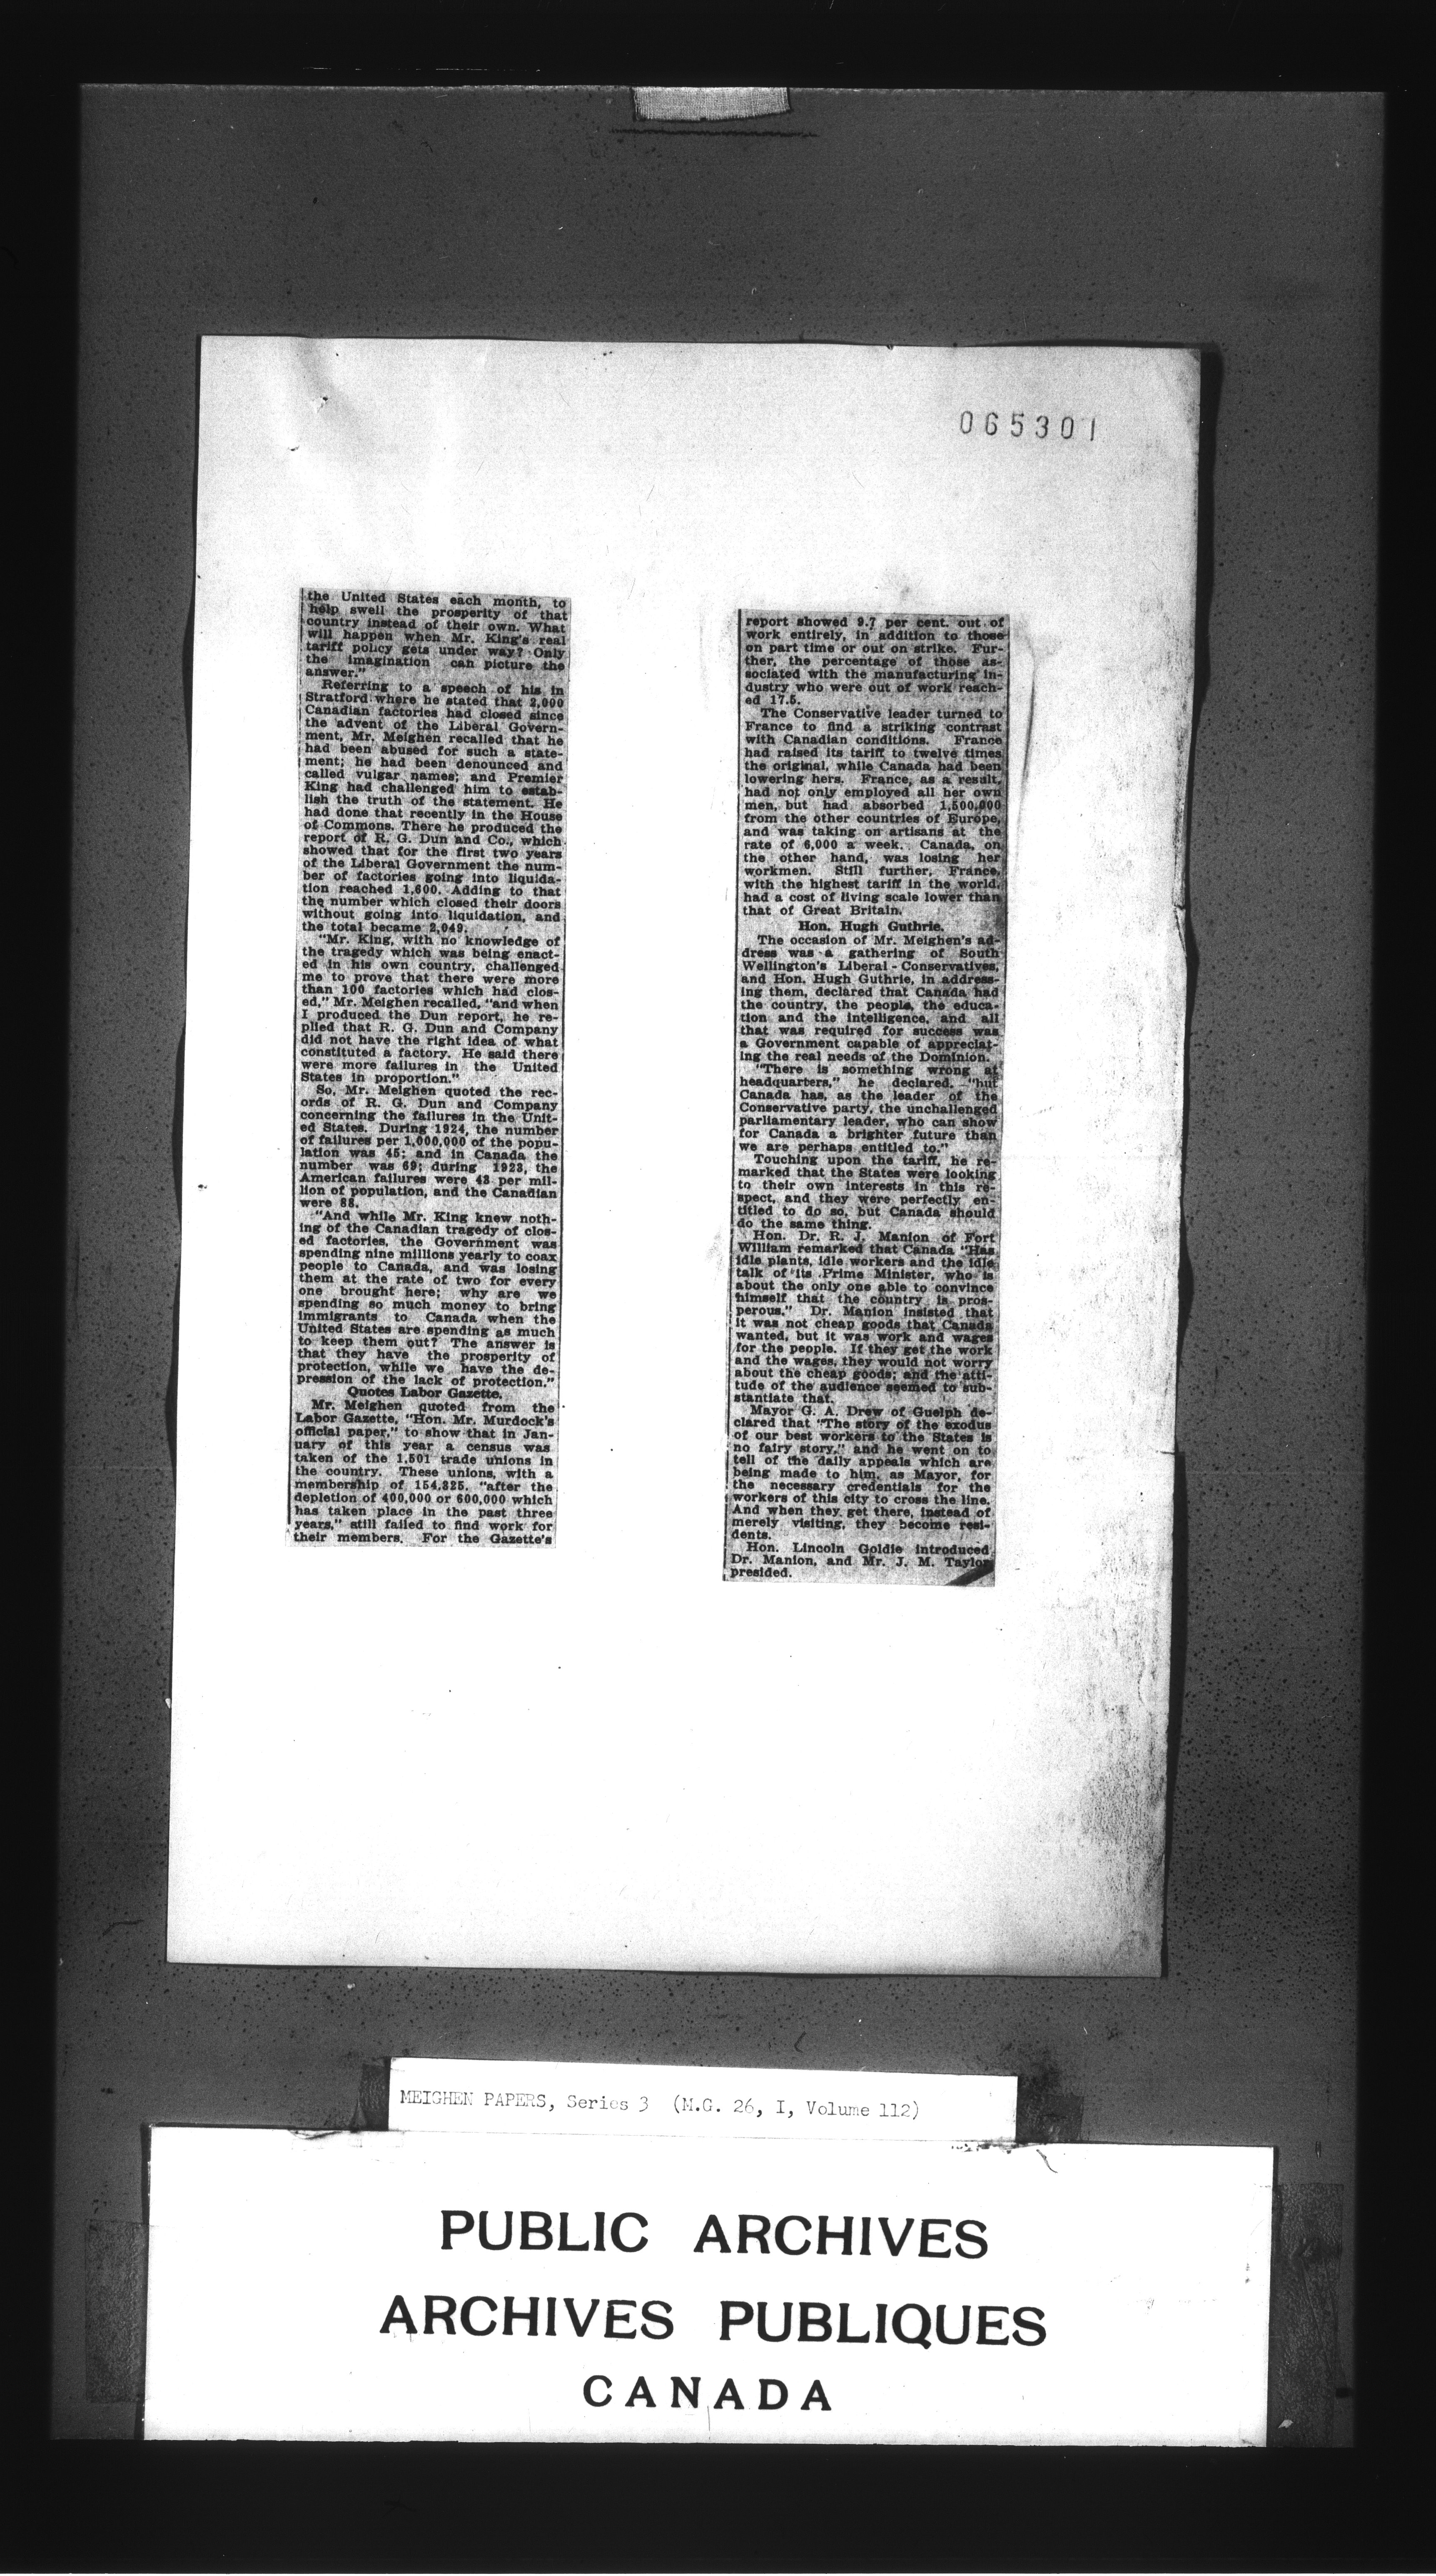 065301
the United States each month, to
help swell the prosperity of that
country instead of their own. What
will happen when Mr. King's real
tariff policy gets under way? Only
the imagination can picture the
answer."
Referring to a speech of his in
Stratford where he stated that 2,000
Canadian factories had closed since
the advent of the Liberal Govern-
ment, Mr. Meighen recalled that he
had been abused for such a state-
ment; he had been denounced and
called vulgar names; and Premier
King had challenged him to estab-
lish the truth of the statement. He
had done that recently in the House
of Commons. There he produced the
report of R. G. Dun and Co., which
showed that for the first two years
of the Liberal Government the num-
ber of factories going into liquida-
tion reached 1,600. Adding to that
the number which closed their doors
without going into liquidation, and
the total became 2,049.
"Mr. King, with no knowledge of
the tragedy which was being enact-
ed in his own country, challenged
me to prove that there were more
than 100 factories which had clos-
ed," Mr. Meighen recalled, "and when
I produced the Dun report, he re-
plied that R. G. Dun and Company
did not have the right idea of what
constituted a factory. He said there
were more failures in the United
States in proportion."
So, Mr. Meighen quoted the rec-
ords of R. G. Dun and Company
concerning the failures in the Unit-
ed States. During 1924, the number
of failures per 1,000,000 of the popu-
lation was 45; and in Canada the
number was 69; during 1923, the
American failures were 43 per mil-
lion of population, and the Canadian
were 88.
"And while Mr. King knew noth-
ing of the Canadian tragedy of clos-
ed factories, the Government was
spending nine millions yearly to coax
people to Canada, and was losing
them at the rate of two for every
one brought here; why are we
spending so much money to bring
immigrants to Canada when the
United States are spending as much
to keep them out? The answer is
that they have the prosperity of
protection, while we have the de-
pression of the lack of protection."
Quotes Labor Gazette.
Mr. Meighen quoted from the
Labor Gazette, "Hon. Mr. Murdock's
official paper," to show that in Jan-
uary of this year a census was
taken of the 1,501 trade unions in
the country. These unions, with a
membership of 154,325, "after the
depletion of 400,000 or 600,000 which
has taken place in the past three
years," still failed to find work for
their members. For the Gazette's
report showed 9.7 per cent. out of
work entirely, in addition to those
on part time or out on strike. Fur-
ther, the percentage of those as-
sociated with the manufacturing in-
dustry who were out of work reach-
ed 17.5.
The Conservative leader turned to
France to find a striking contrast
with Canadian conditions. France
had raised its tariff to twelve times
the original, while Canada had been
lowering hers. France, as a result,
had not only employed all her own
men, but had absorbed 1,500,000
from the other countries of Europe,
and was taking on artisans at the
rate of 6,000 a week. Canada, on
the other hand, was losing her
workmen. Still further, France,
with the highest tariff in the world,
had a cost of living scale lower than
that of Great Britain.
Hon. Hugh Guthrie.
The occasion of Mr. Meighen's ad-
dress was a gathering of South
Wellington's Liberal-Conservatives,
and Hon. Hugh Guthrie, in address-
ing them, declared that Canada had
the country, the people, the educa-
tion and the intelligence, and all
that was required for success was
a Government capable of appreciat-
ing the real needs of the Dominion.
"There is something wrong at
headquarters," he declared, "but
Canada has, as the leader of the
Conservative party, the unchallenged
parliamentary leader, who can show
for Canada a brighter future than
we are perhaps entitled to."
Touching upon the tariff, he re-
marked that the States were looking
to their own interests in this re-
spect, and they were perfectly en-
titled to do so, but Canada should
do the same thing.
Hon. Dr. R. J. Manion of Fort
William remarked that Canada "Has
idle plants, idle workers and the idle
talk of its Prime Minister, who is
about the only one able to convince
himself that the country is pros-
perous." Dr. Manion insisted that
it was not cheap goods that Canada
wanted, but it was work and wages
for the people. If they get the work
and the wages, they would not worry
about the cheap goods; and the atti-
tude of the audience seemed to sub-
stantiate that.
Mayor G. A. Drew of Guelph de-
clared that "The story of the exodus
of our best workers to the States is
no fairy story," and he went on to
tell of the daily appeals which are
being made to him, as Mayor, for
the necessary credentials for the
workers of this city to cross the line.
And when they get there, instead of
merely visiting, they become resi-
dents.
Hon. Lincoln Goldie introduced
Dr. Manion, and Mr. J. M. Taylor
presided.
MEIGHEN PAPERS, Series 3 (M.G. 26, I, Volume 112)
PUBLIC ARCHIVES
ARCHIVES PUBLIQUES
CANADA